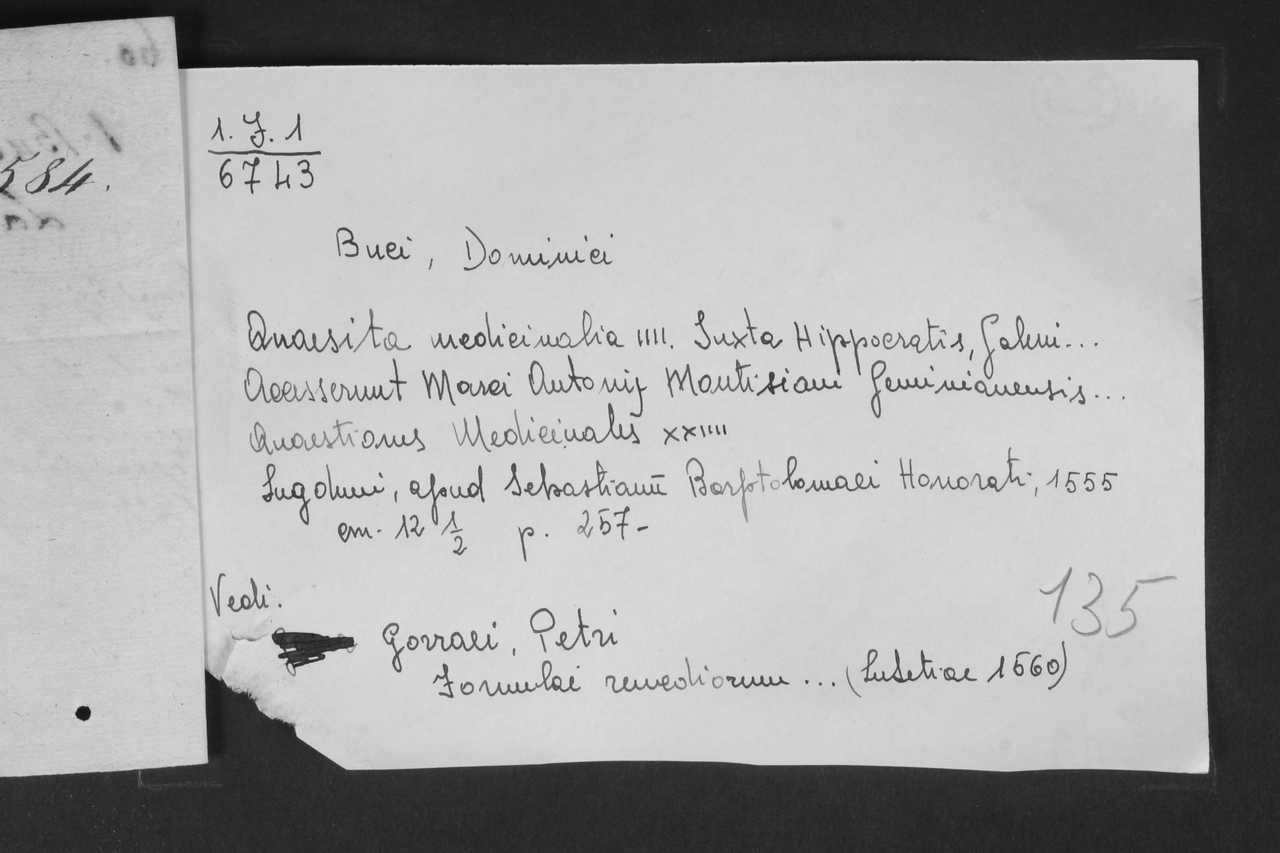 584.
1. J. 1
6743
Buci, Dominici
Quaesita medicinalia IIII. Juxta Hippocratis, Galeni...
Accesserunt Marci Antonij Montisiani Geminianensis...
Quaestiones Medicinales XXIIII
Lugduni, apud Sebastianū Barptolomaei Honorati, 1555
cm. 12 1/2 p. 257-
Vedi.
135
Gorraei, Petri
Formulae remediorum ... (Lutetiae 1560)